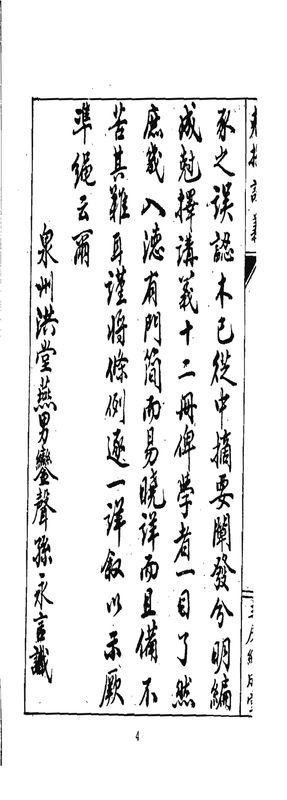 豕之誤認木已從中摘要闡發分明編
成尅擇講義十二冊俾學者一目了然
庶幾入德有門簡而易曉詳而且備不
苦其難耳謹將條例逐一詳敘以示厥
準繩云爾
泉州洪堂燕男鑾聲孫永言識
4